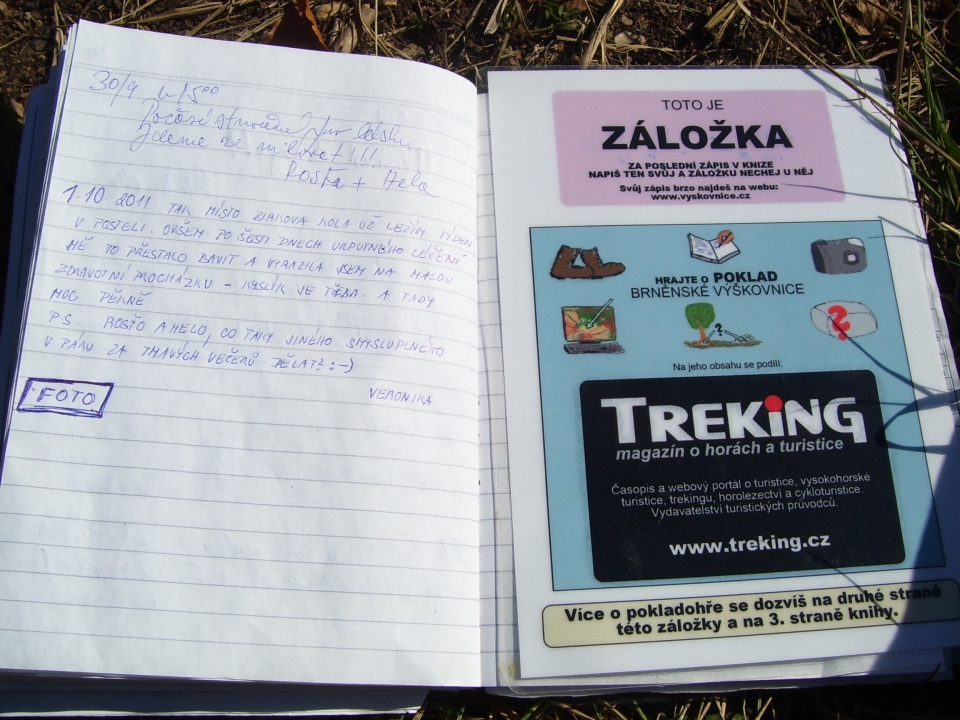 30/9 v 15°°
Jdeme se milovat!!!
Rosťa + Hela
1.10.2011 TAK MÍSTO BIAKOVA KOLA UŽ LEŽÍM TÝDEN
V POSTELI. OVŠEM PO ŠESTI DNECH URPUTNÉHO LÉČENÍ
MĚ TO PŘESTALO BAVIT A VYRAZILA JSEM NA MALOU
ZDRAVOTNÍ PROCHÁZKU - KYSLÍK JE TŘEBA. A TADY
MOC PĚKNĚ
P.S. ROSŤO A HELO, CO TAKY JINÉHO SMYSLUPLNÉHO
V PÁRU ZA TMAVÝCH VEČERŮ DĚLAT? :-)
VERONIKA
FOTO
TOTO JE
ZÁLOŽKA
ZA POSLEDNÍ ZÁPIS V KNIZE
NAPIŠ TEN SVŮJ A ZÁLOŽKU NECHEJ U NĚJ
Svůj zápis brzo najdeš na webu:
www.vyskovnice.cz
HRAJTE O POKLAD
BRNĚNSKÉ VÝŠKOVNICE
?
?
Na jeho obsahu se podílí:
TREKING
magazín o horách a turistice
Časopis a webový portál o turistice, vysokohorské
turistice, trekingu, horolezectví a cykloturistice.
Vydavatelství turistických průvodců.
www.treking.cz
Více o pokladohře se dozvíš na druhé straně
této záložky a na 3. straně knihy.